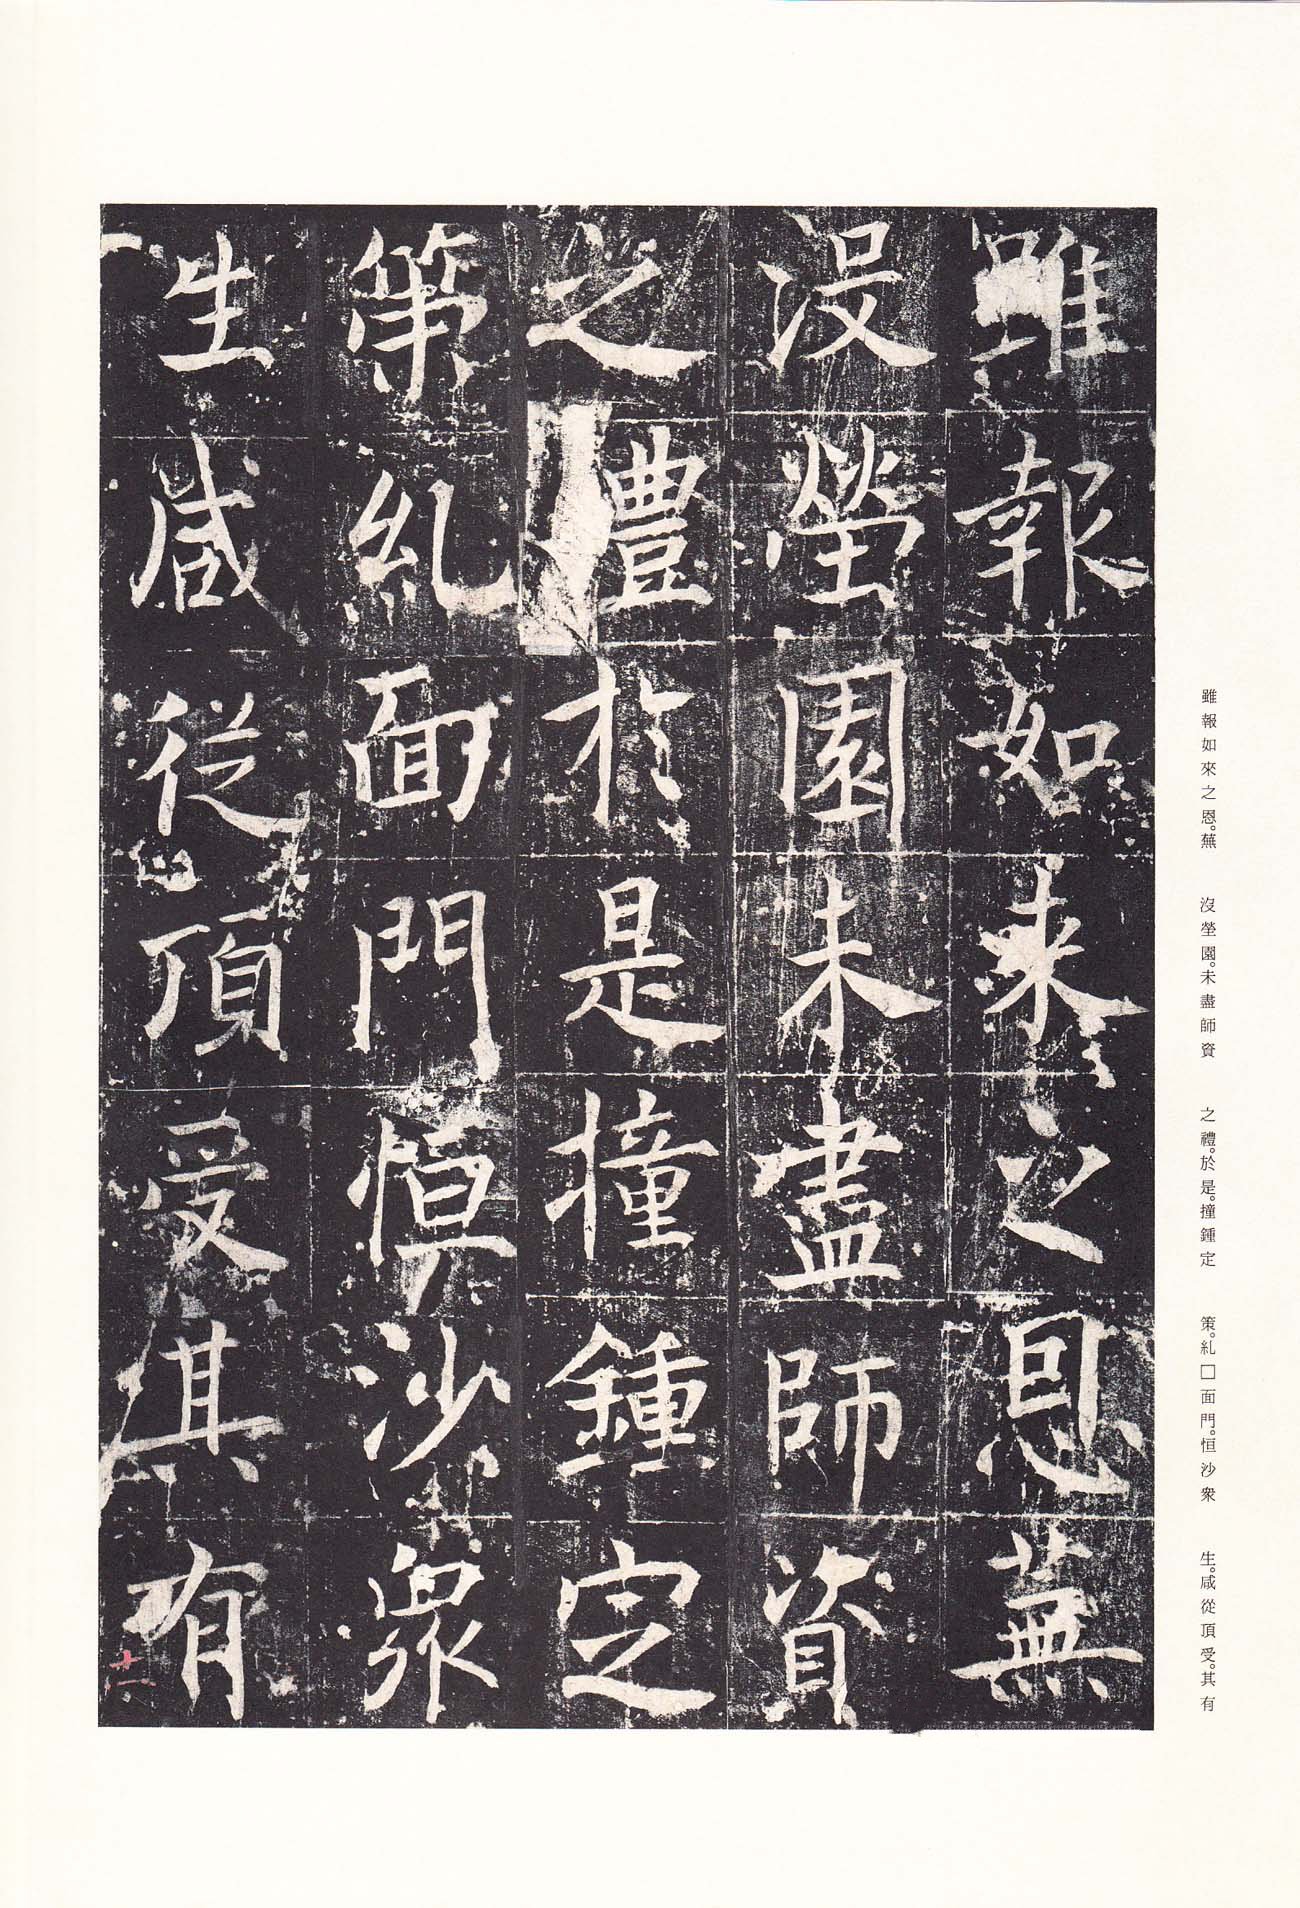 雖報如來之恩蕪
沒塋園未盡師資
之禮於是撞鍾定
策糺面門恒沙衆
生咸從頂受其有
十一
雖報如來之恩。蕪　沒塋園。未盡師資　之禮。於是。撞鍾定　策。糺□面門。恒沙衆　生。咸從頂受。其有